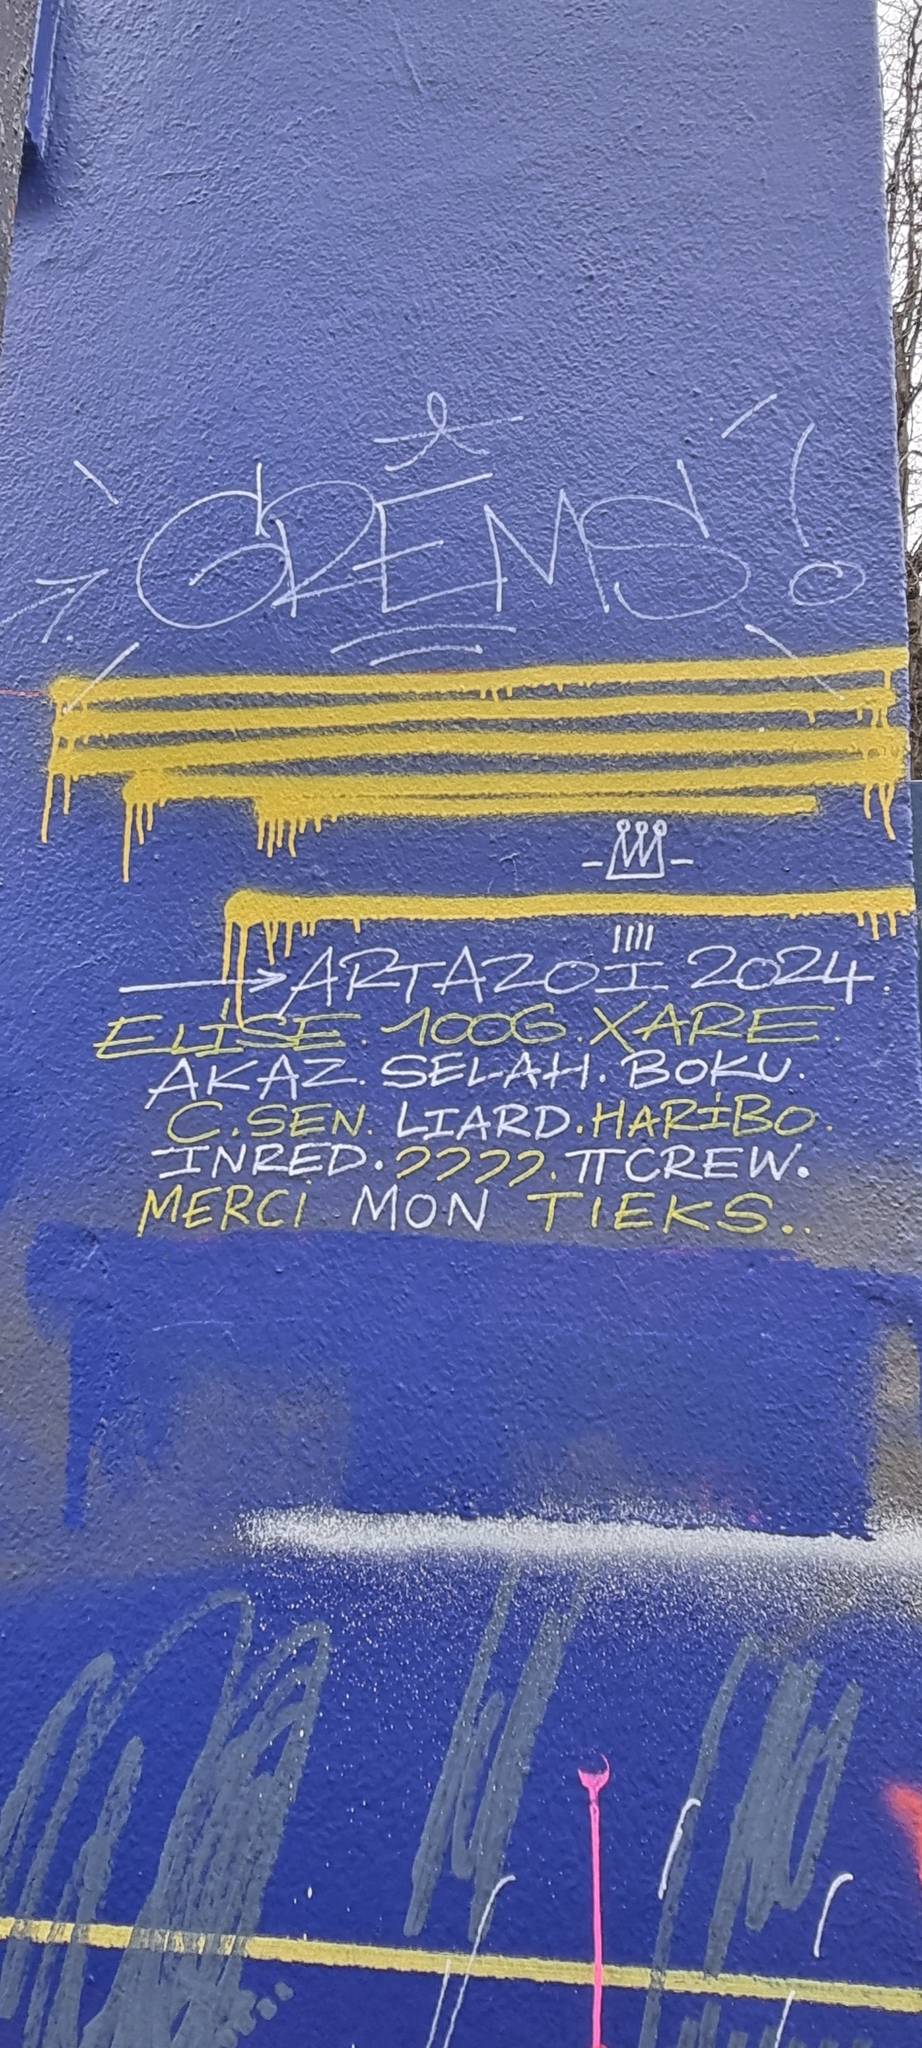 GREMS!
ARTAZOI 2024.
ELISE. 100G. XARE.
AKAZ. SELAH. BOKU.
C.SEN. LIARD. HARIBO.
INRED. ????. πCREW.
MERCI MON TIEKS..